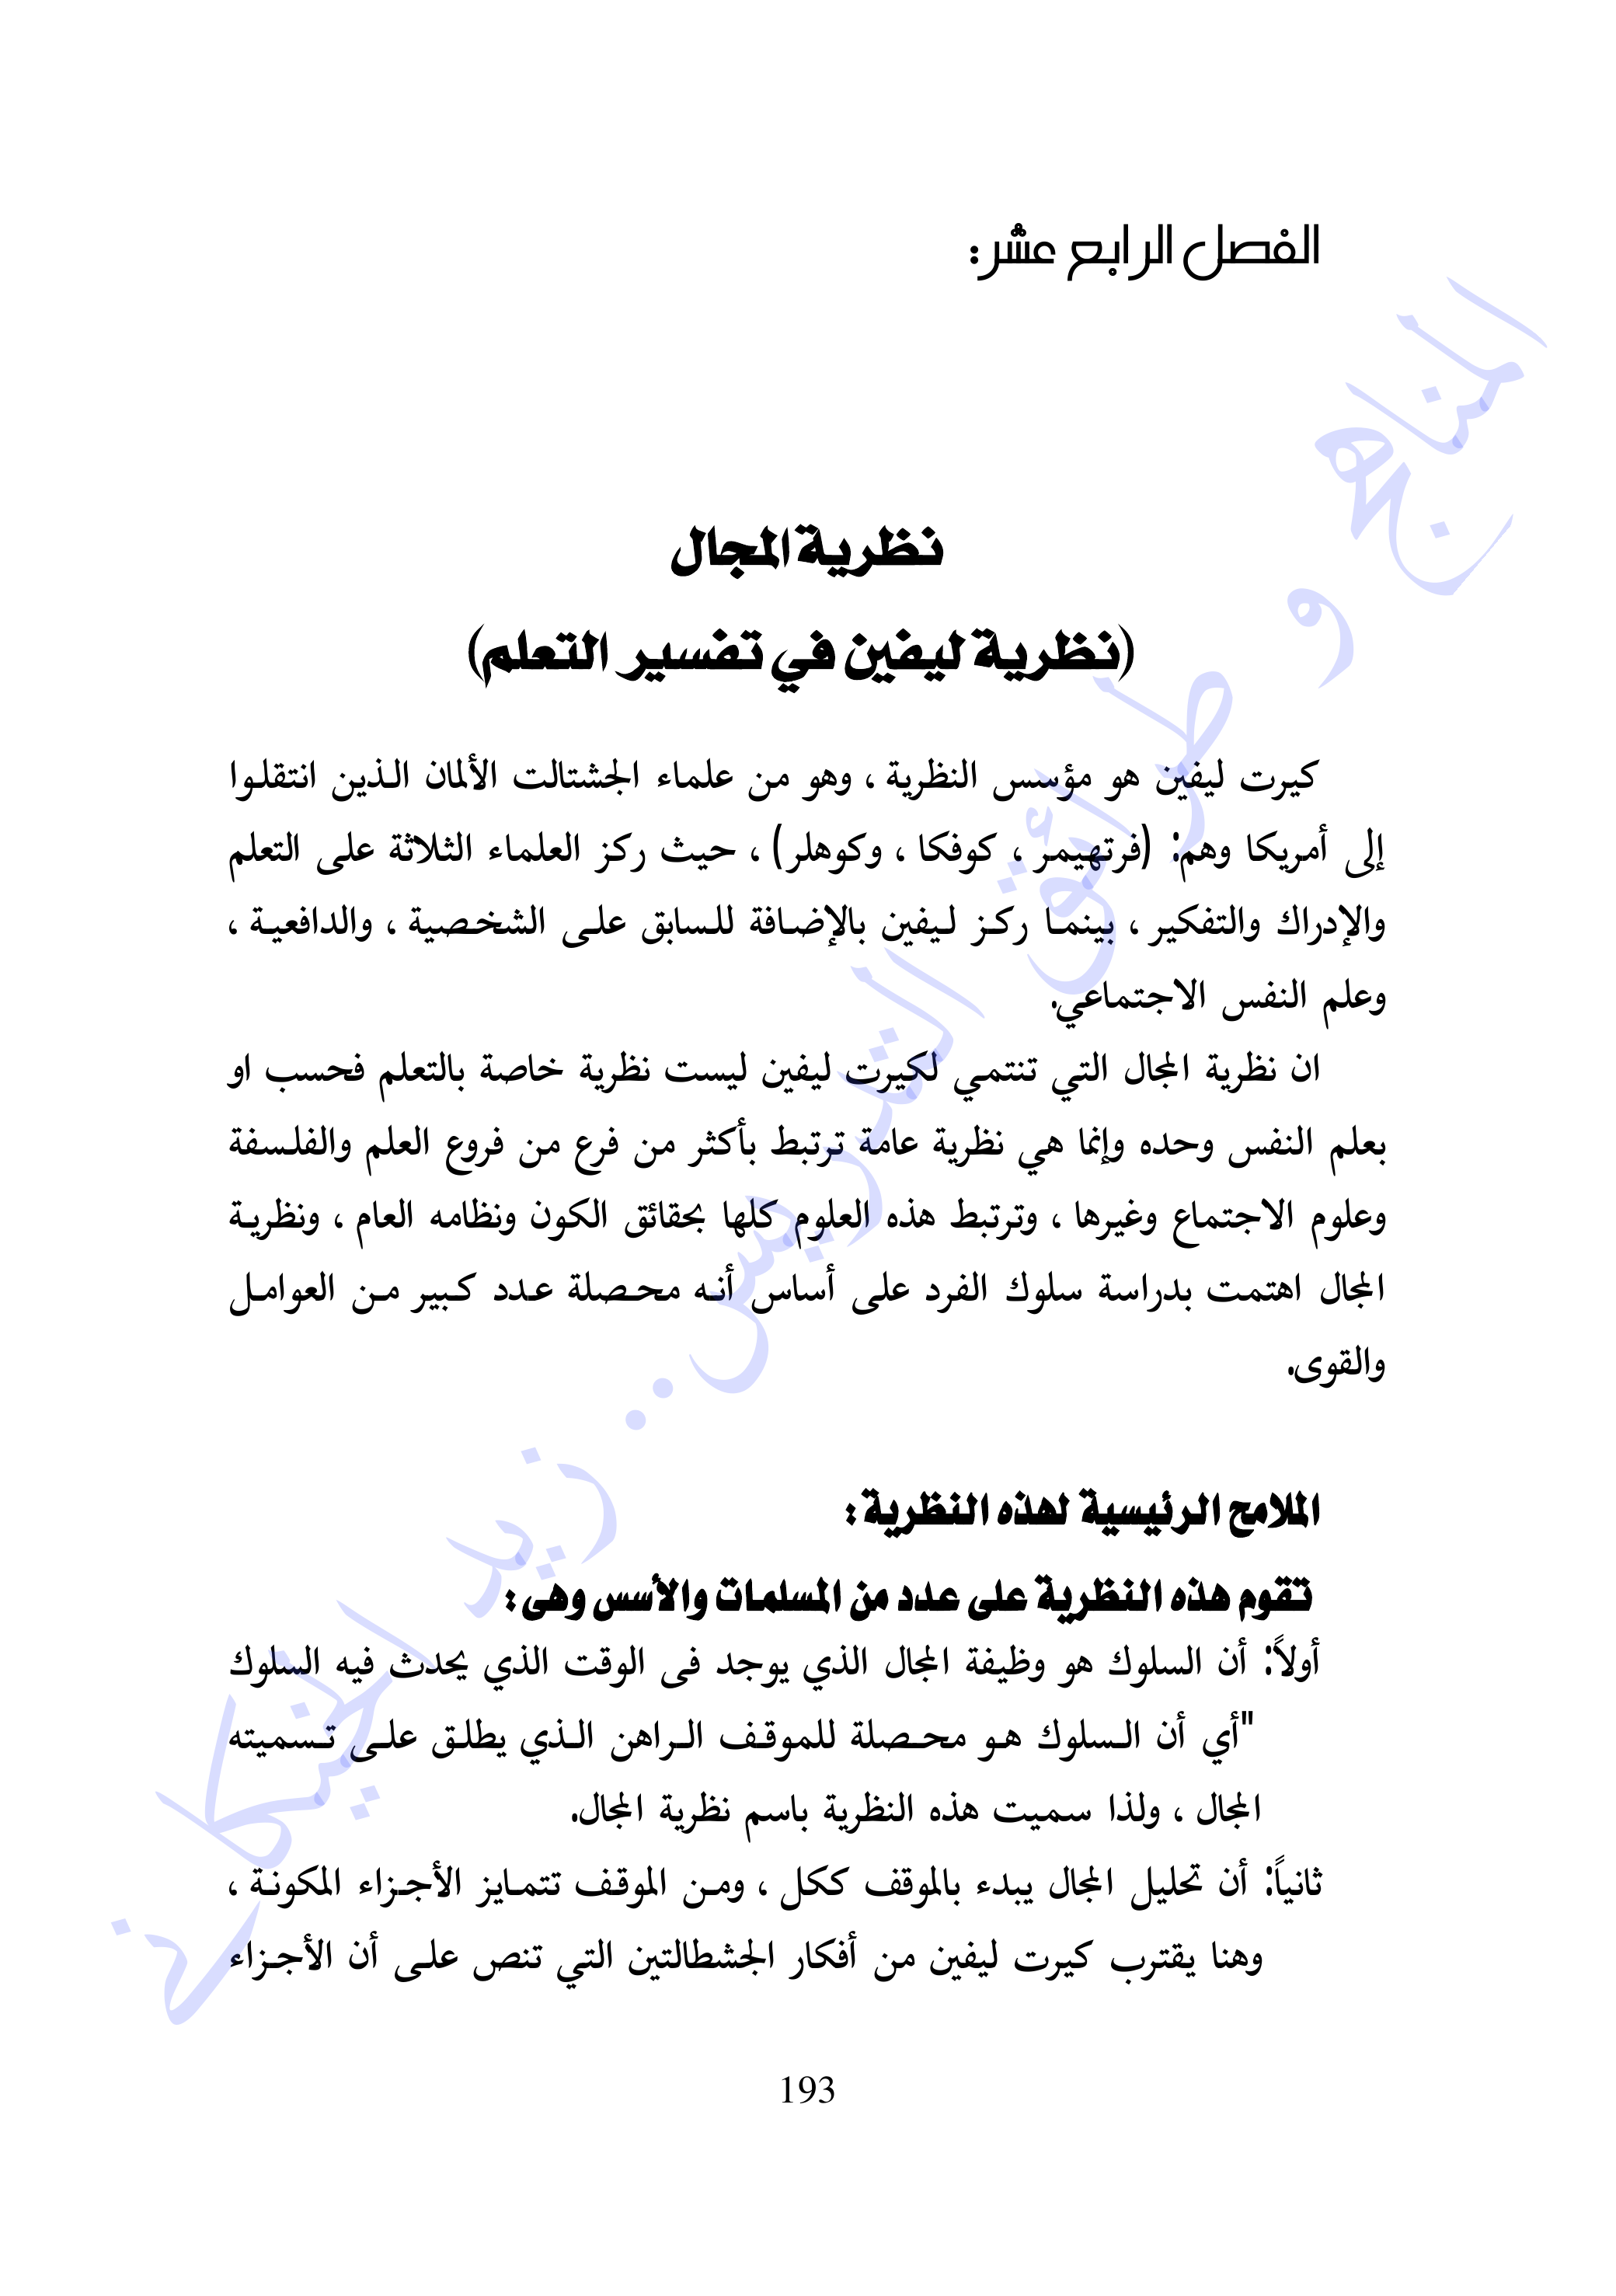 الفصل الرابع عشر:
نظرية المجال
(نظرية ليفين في تفسير التعلم)
كيرت ليفين هو مؤسس النظرية ، وهو من علماء الجشتالت الألمان الذين انتقلوا
إلى أمريكا وهم: (فرتهيمر ، كوفكا ، وكوهلر) ، حيث ركز العلماء الثلاثة على التعلم
والإدراك والتفكير ، بينما ركز ليفين بالإضافة للسابق على الشخصية ، والدافعية ،
وعلم النفس الاجتماعي.
ان نظرية المجال التي تنتمي لكيرت ليفين ليست نظرية خاصة بالتعلم فحسب او
بعلم النفس وحده وإنما هي نظرية عامة ترتبط بأكثر من فرع من فروع العلم والفلسفة
وعلوم الاجتماع وغيرها ، وترتبط هذه العلوم كلها بحقائق الكون ونظامه العام ، ونظرية
المجال اهتمت بدراسة سلوك الفرد على أساس أنه محصلة عدد كبير من العوامل
والقوى.
الملامح الرئيسية لهذه النظرية :
تقوم هذه النظرية على عدد من المسلمات والأسس وهى :
أولاً: أن السلوك هو وظيفة المجال الذي يوجد فى الوقت الذي يحدث فيه السلوك
"أي أن السلوك هو محصلة للموقف الراهن الذي يطلق على تسميته
المجال ، ولذا سميت هذه النظرية باسم نظرية المجال.
ثانياً: أن تحليل المجال يبدء بالموقف ككل ، ومن الموقف تتمايز الأجزاء المكونة ،
وهنا يقترب كيرت ليفين من أفكار الجشطالتين التي تنص على أن الأجزاء
193
المناهج و طرائق التدريس.. زيد الخيكاني